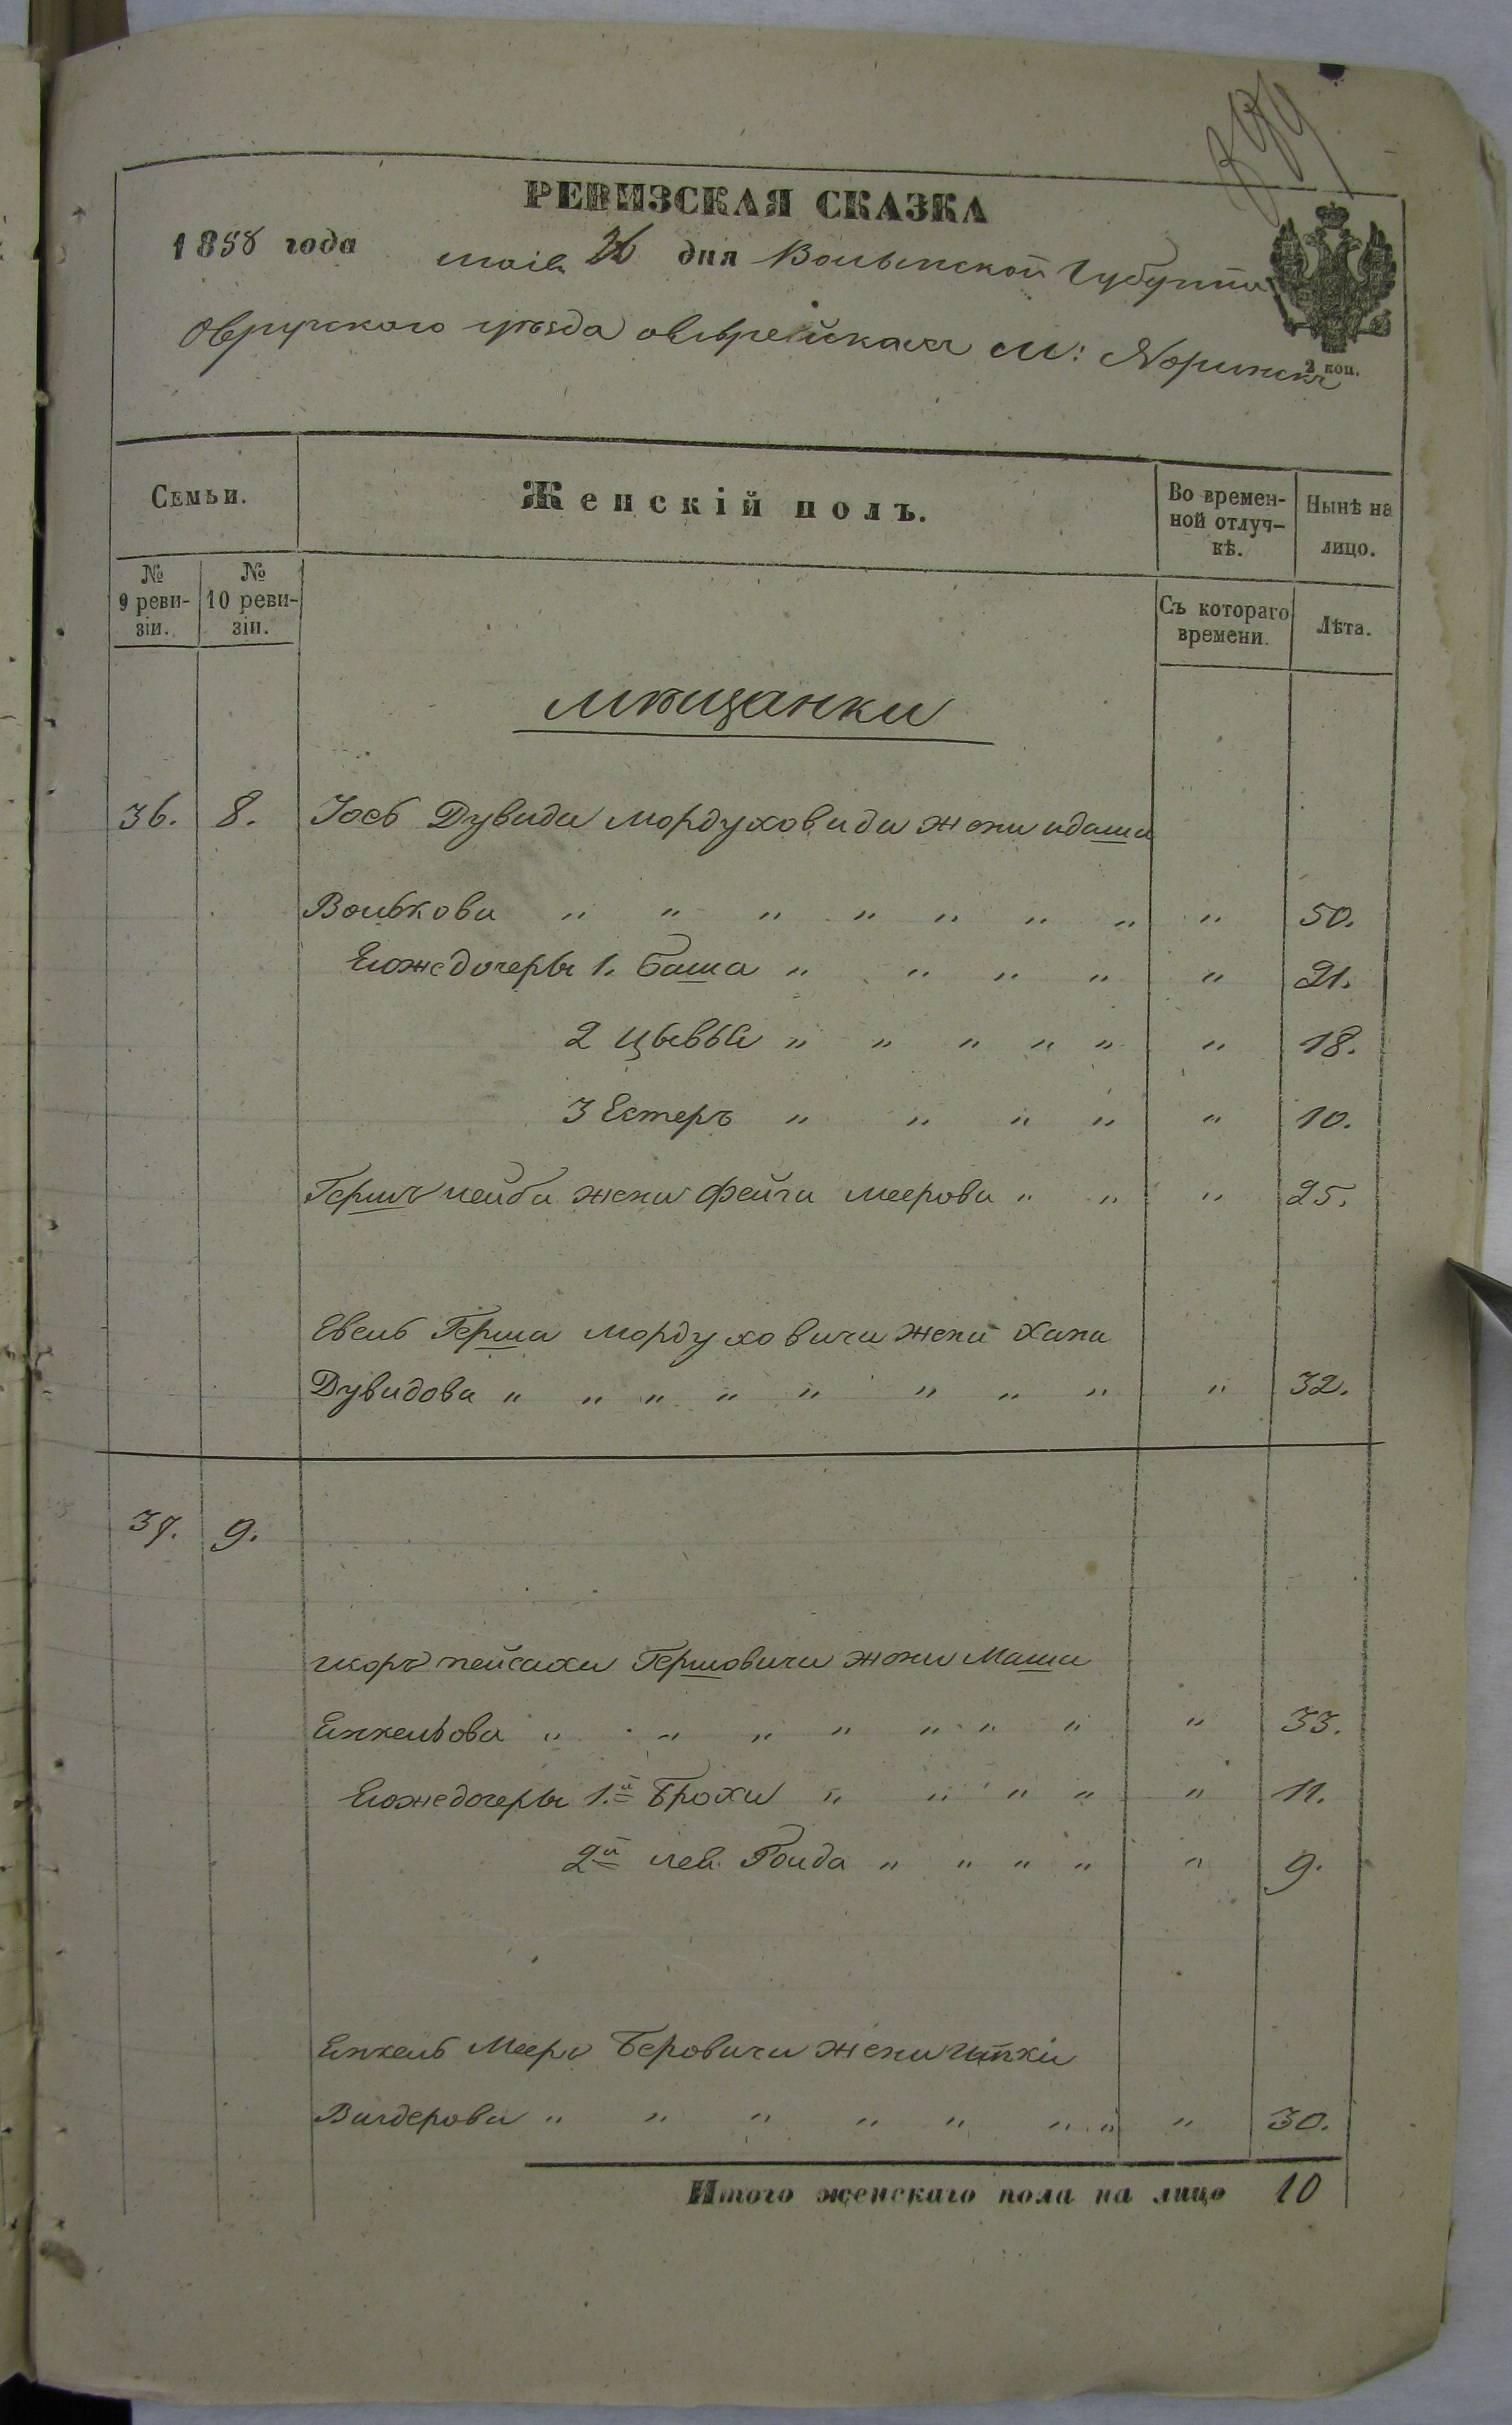 РЕВИЗСКАЯ СКАЗКА
1858 года маія 26 дня Волынской Губерніи
Овручского уѣзда овѣрейскаи м: Норинскъ
2 коп.
Семьи. Женскій полъ. Во времен-ной отлуч-кѣ. Нынѣ на лицо.
№ 9 реви-зіи. № 10 реви-зіи. Съ котораго времени. Лѣта.
мѣщанки
36. 8. Іось Дувида Мордуховида жена идаша
Волькова " " " " " " " " 50.
Еюжедочеры 1. Баша " " " " " 21.
2 Цывья " " " " " " 18.
3 Естеръ " " " " " 10.
Гершъ лейба жена Фейга меерова " " " 25.
Евель Герша мордуховича жена Хана
Дувидова " " " " " " " " " 32.
37. 9.
пейсаха Гершовича жена Маша
Енкельова " " " " " " " " 33.
Еюжедочеры 1.й Броха " " " " " 11.
2й Роида " " " " " 9.
Енкель Меера Беровича жена
Вигдерова " " " " " " " " 30.
Итого женскаго пола на лицо 10